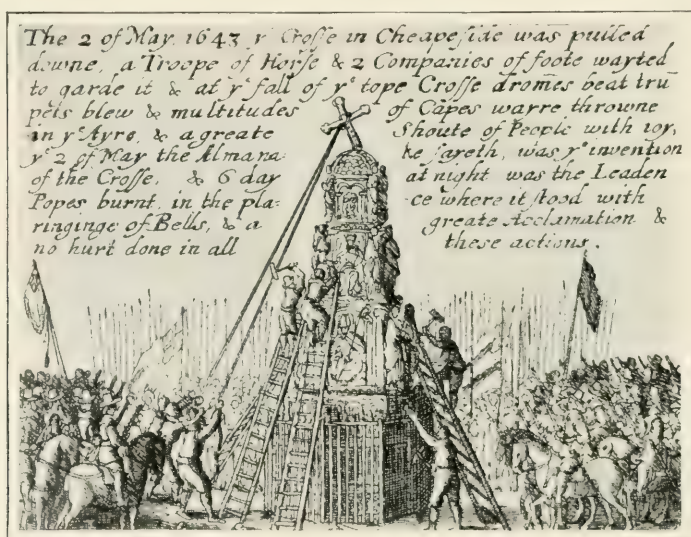 The 2 of May. 1643 yͤ Crosse in Cheapeside was pulled
downe, a Troope of Horse & 2 Companies of foote wayted
to garde it & at yͤ fall of yͤ tope Crosse dromes beat tru
pets blew & multitudes of Capes wayre throwne
in yͤ Ayre, & a greate Shoute of People with ioy,
yͤ 2 of May the Almana ke sayeth, was yͤ invention
of the Crosse, & 6 day at night was the Leaden
Popes burnt, in the pla- ce where it stood with
ringinge of Bells, & a greate Acclamation &
no hurt done in all these actions.